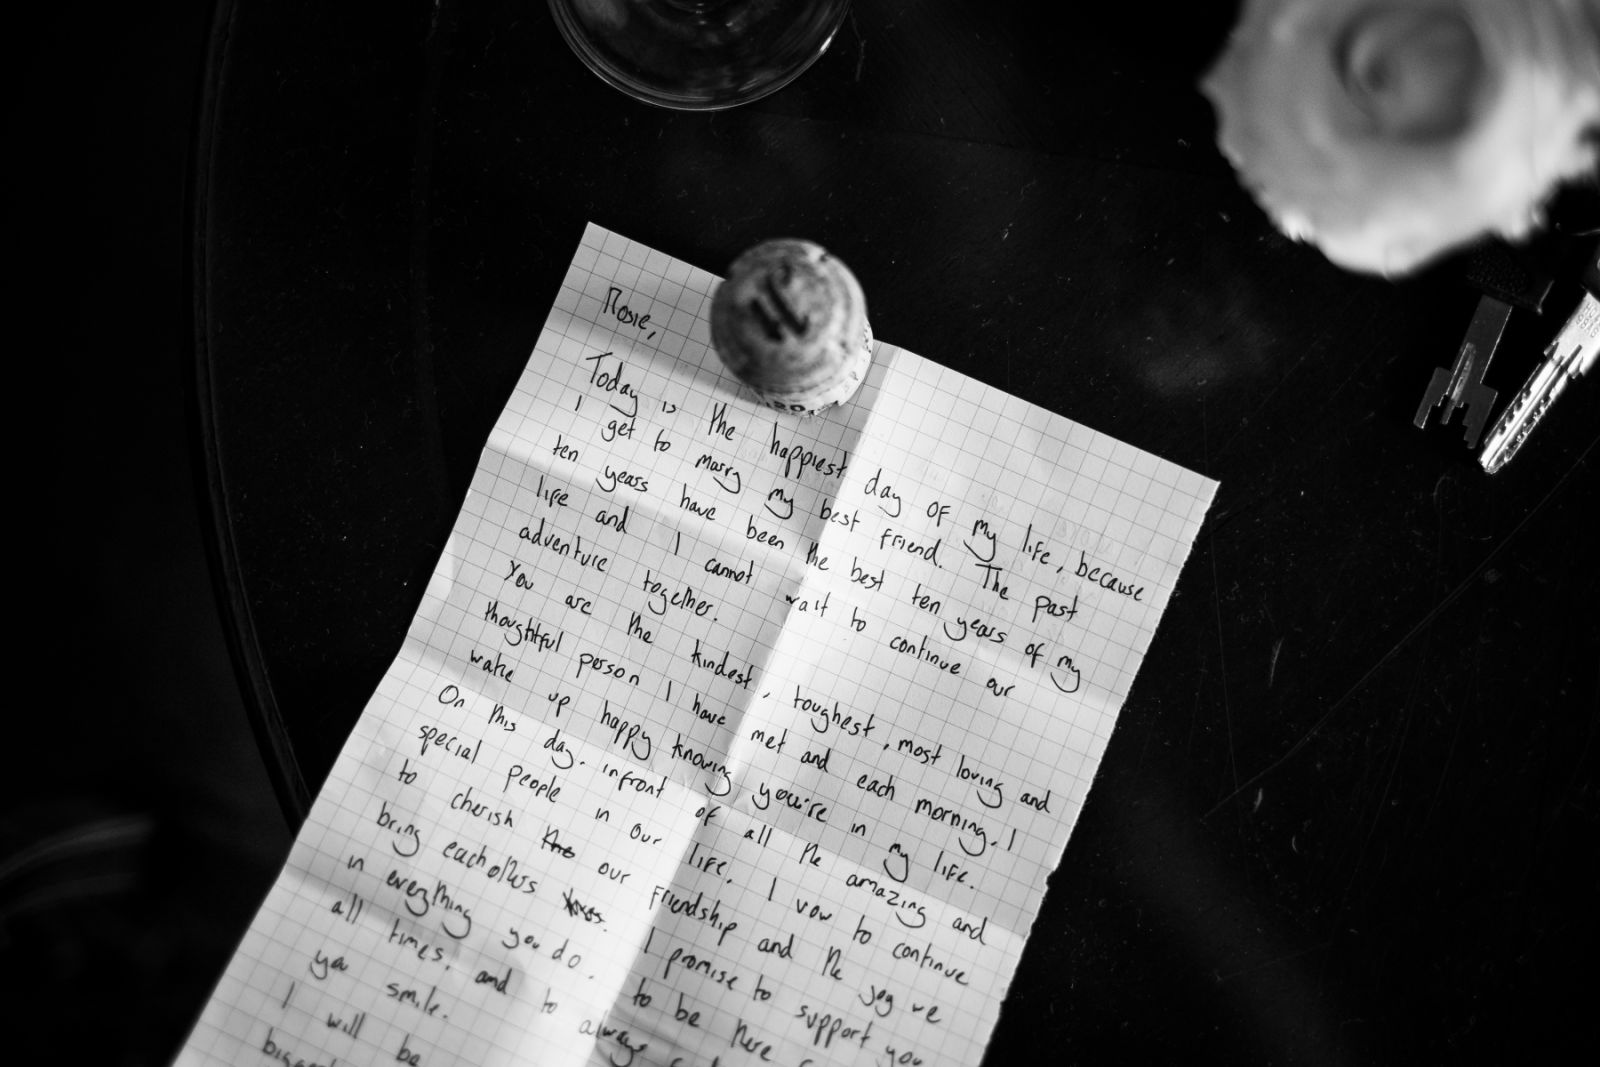 Rosie,
Today is the happiest day of my life, because
I get to marry my best friend. The past
ten years have been the best ten years of my
life and I cannot wait to continue our
adventure together.
You are the kindest, toughest, most loving and
thoughtful person I have met and each morning, I
wake up happy knowing you're in my life.
On this day, infront of all the amazing and
special people in our life, I vow to continue
to cherish the our friendship and the joy we
bring eachothers I promise to support you
in everything you do. to be there
all times, and to always
you smile.
I will be